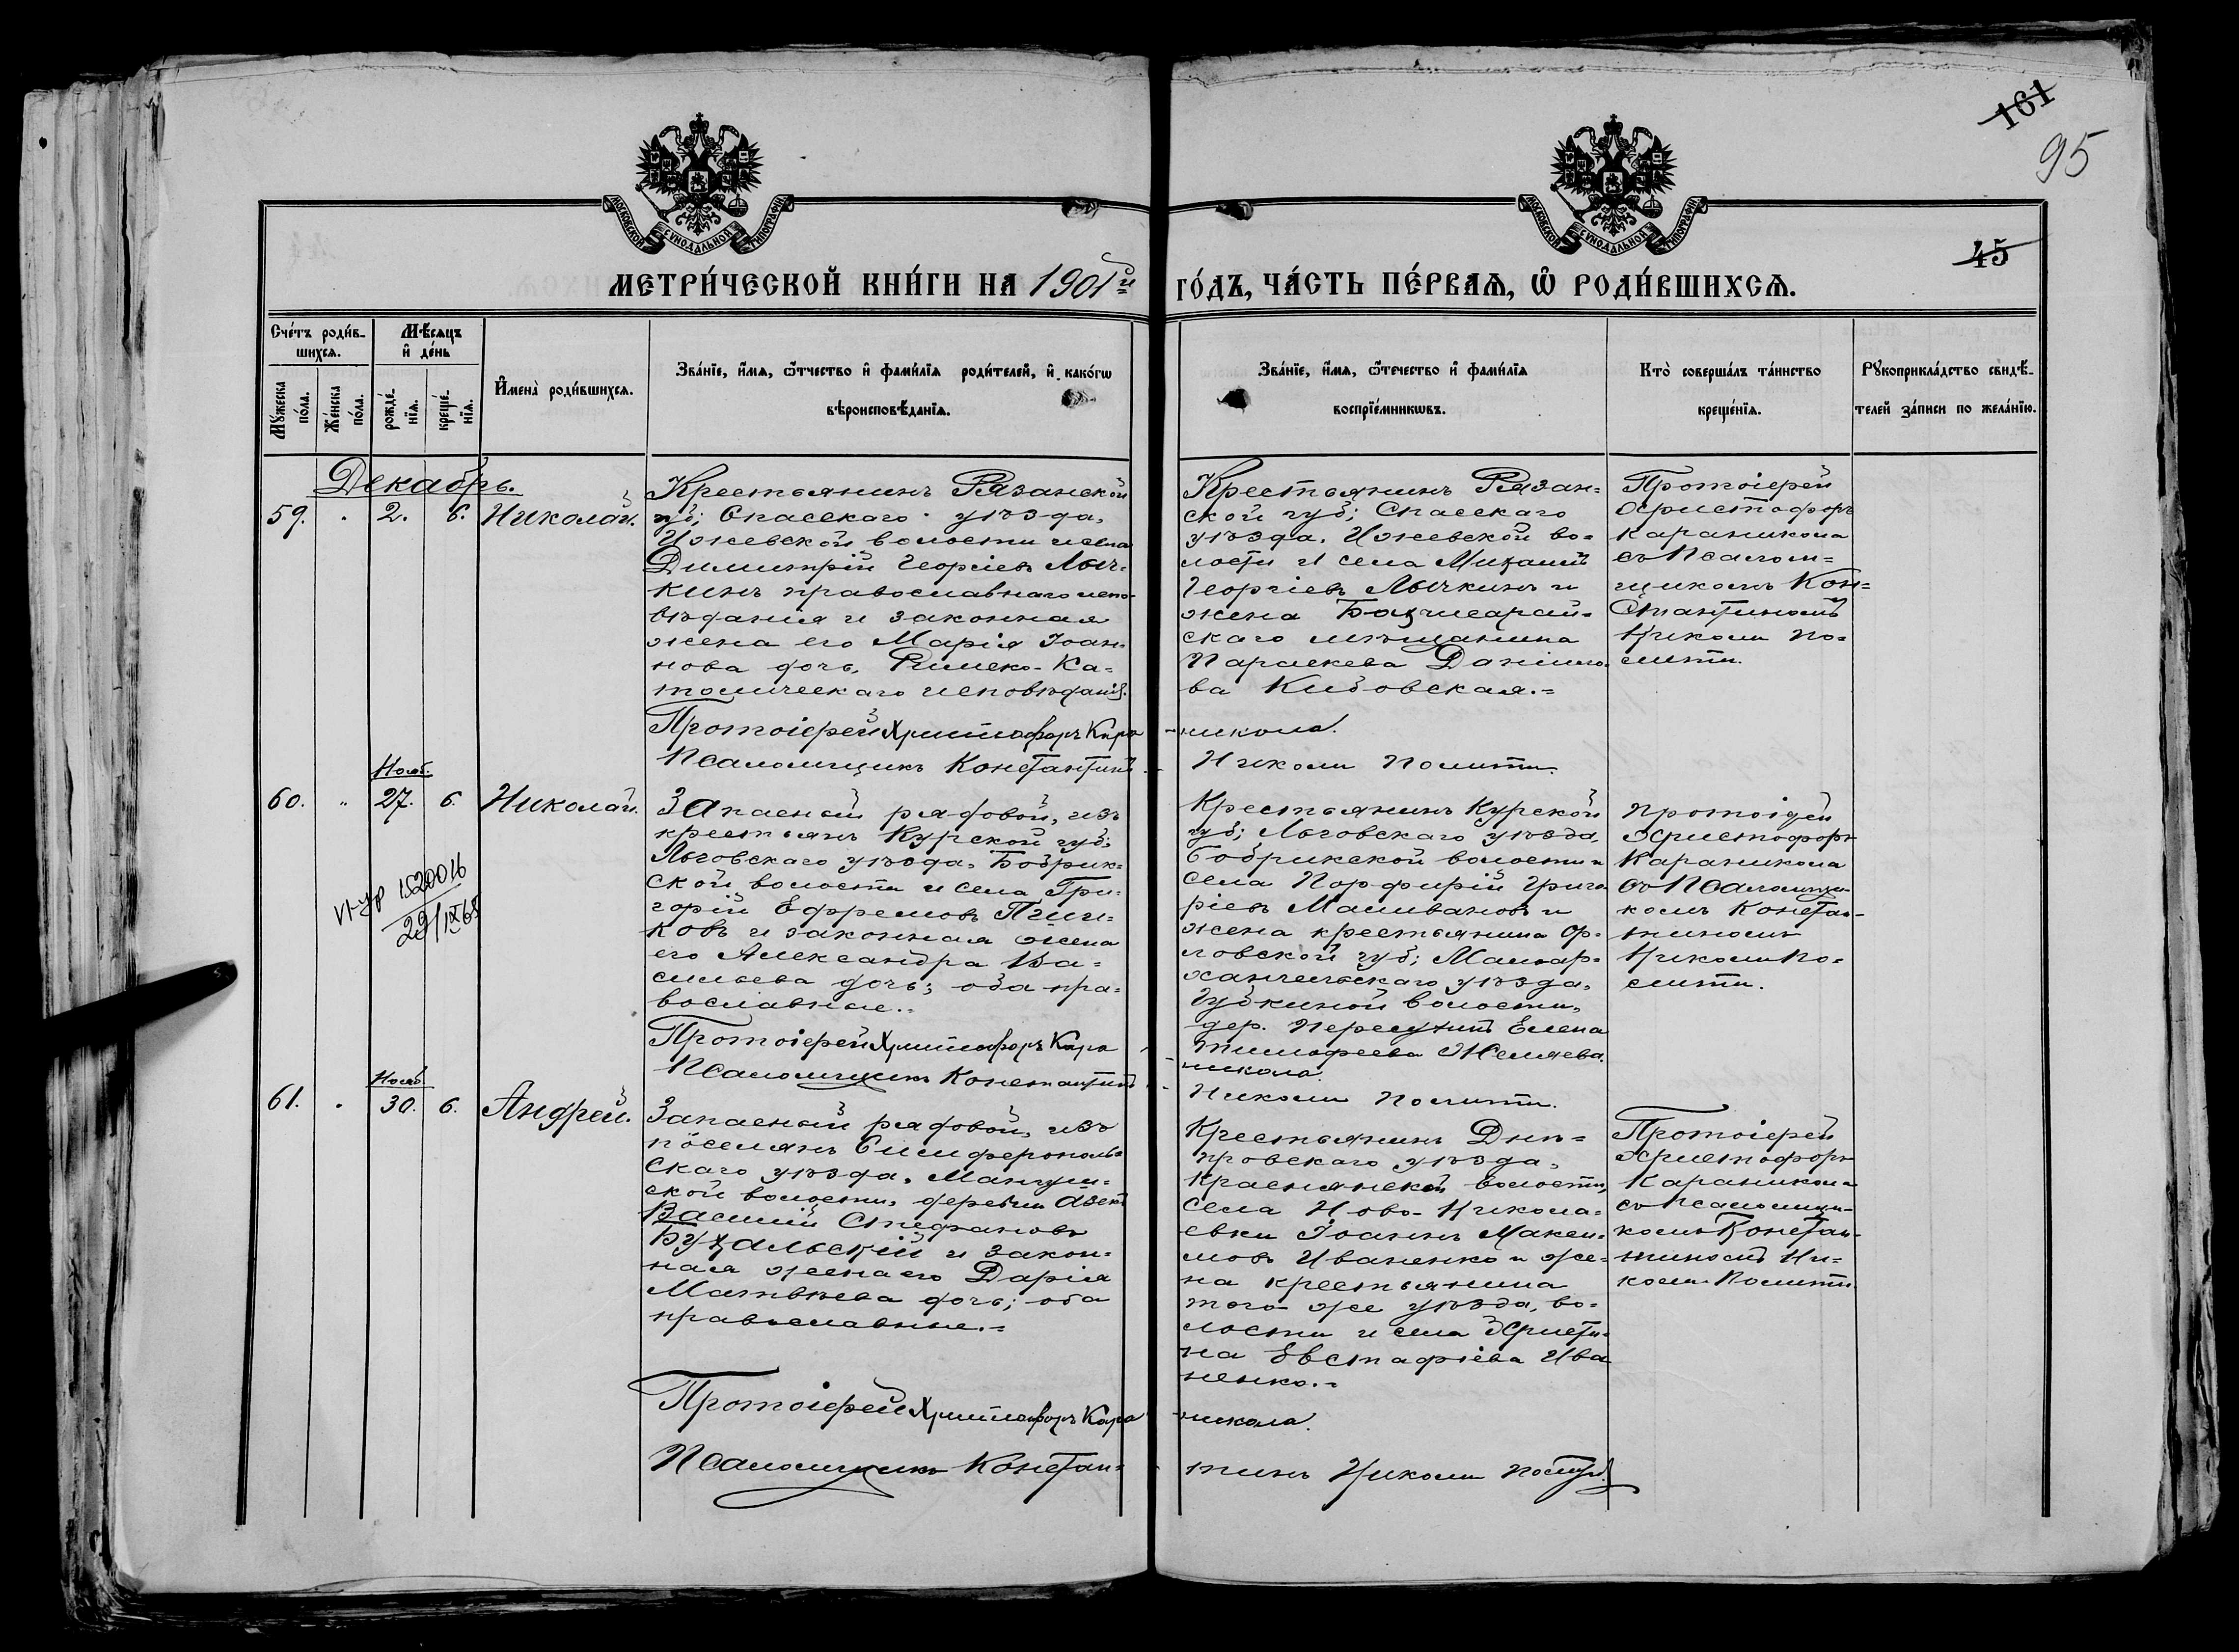 161
95
45
МОСКОВСКОЙ СѴНОДАЛЬНОЙ ТИПОГРАФІИ
МОСКОВСКОЙ СѴНОДАЛЬНОЙ ТИПОГРАФІИ
МЕТРИ́ЧЕСКОЙ КНИ́ГИ НА 1901й ГО́ДЪ, ЧА́СТЬ ПЕ́РВАѦ, Ѡ҆ РОДИ́ВШИХСѦ.
Сче́тъ роди́в-
шихсѧ.
Мѣ́сѧцъ
и҆ де́нь
Мꙋ́жеска
по́ла.
Же́нска
по́ла.
рожде́-
нїѧ.
креще́-
нїѧ.
И҆мена̀ роди́вшихсѧ.
Зва́нїе, и҆́мѧ, ѻ҆́тчество и҆ фами́лїѧ роди́телей, и҆ како́гѡ
вѣроисповѣ́данїѧ.
Зва́нїе, и҆́мѧ, ѻ҆́течество и҆ фами́лїѧ
воспрїе́мникѡвъ.
Кто̀ соверша́лъ та́инство
креще́нїѧ.
Рꙋкоприкла́дство свидѣ́-
телей за́писи по жела́нїю.
Декабрь.
59.
2.
6.
Николай.
Крестьянинъ Рязанской
губ; Спасскаго уѣзда,
Ижевской волости и села
Димитрій Георгіевъ Лыч-
кинъ православнаго испо-
вѣданія и законная
жена его Марія Іоан-
нова дочь, Римско-Ка-
толическаго исповѣданія.
Крестьянинъ Рязан-
ской губ; Спасскаго
уѣзда, Ижевской во-
лости и села Михаилъ
Георгіевъ Лычкинъ и
жена Бахчисарай-
скаго мѣщанина
Параскева Данило-
ва Кибовская.-
Протоіерей
Христофоръ
Караникола
съ Псалом-
щикомъ Кон-
стантиномъ
Николи По-
лити.
Протоіерей Христофоръ Кара-
никола.
Псаломщикъ Константинъ
Николи Политти.
60.
Нояб.
27.
6.
Николай.
29/IX 65
Запасный рядовой, изъ
крестьянъ Курской губ;
Льговскаго уѣзда, Бобрик-
ской волости и села Гри-
горій Ефремовъ
и законная жена
его Александра Ва-
сильева дочь; оба пра-
вославные.-
Крестьянинъ Курской
губ; Льговскаго уѣзда,
Бобрикской волости и
села Порфирій Григо-
ріевъ Маливановъ и
жена крестьянина Ор-
ловской губ; Малоар-
хангельскаго уѣзда,
Губкиной волости,
дер. Елена
Тимофеева
Протоіерей
Христофоръ
Караникола
съ Псаломщи-
комъ Констан-
тиномъ
Николи По-
лити.
Протоіерей Христофоръ Кара-
никола.
Псаломщикъ Константинъ
Николи Политти.
61.
Нояб.
30.
6.
Андрей.
Запасный рядовой, изъ
поселянъ Симферополь-
скаго уѣзда, Мангуш-
ской волости, деревни
Василій Стефановъ
Бухальскій и закон-
ная жена его Дарія
Матвѣева дочь; оба
православные.-
Крестьянинъ Днѣ-
провскаго уѣзда,
волости,
села Ново-Никола-
евки Іоаннъ Макси-
мовъ Иваненко и же-
на крестьянина
того же уѣзда, во-
лости и села Христи-
на Евстафіева Ива-
ненко.-
Протоіерей
Христофоръ
Караникола
съ Псаломщи-
комъ Констан-
тиномъ Ни-
коли Политти.
Протоіерей Христофоръ Кара-
никола.
Псаломщикъ Констан-
тинъ Николи Полити.